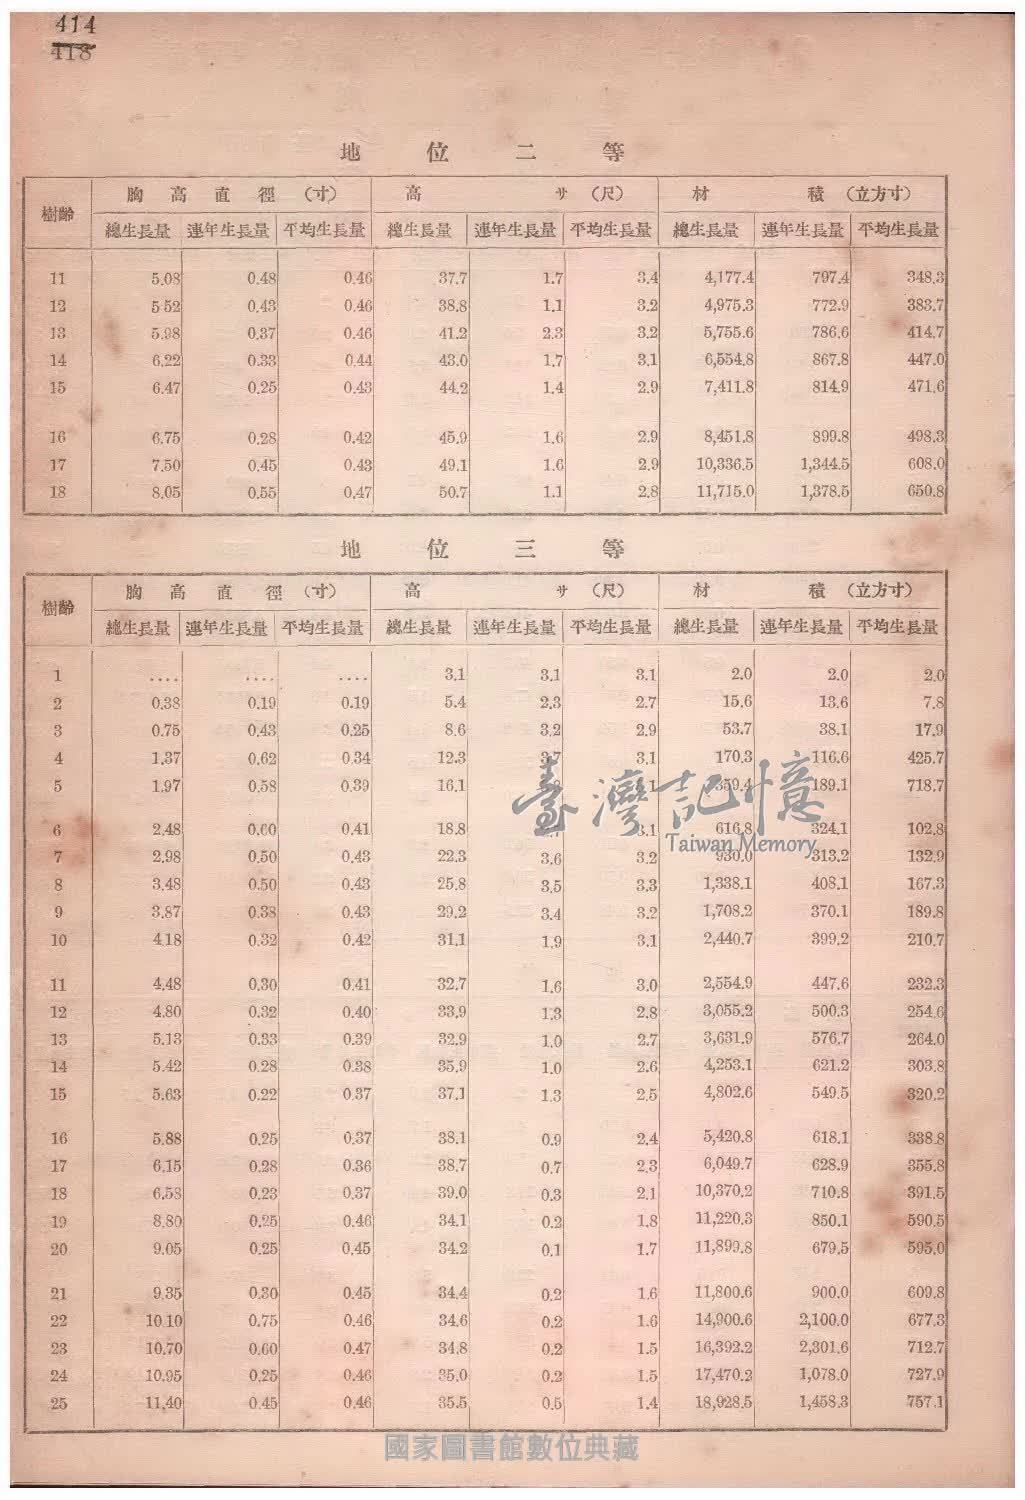 414
418
地位二等
樹齡 胸高直徑（寸） 高サ（尺） 材積（立方寸）
總生長量 連年生長量 平均生長量 總生長量 連年生長量 平均生長量 總生長量 連年生長量 平均生長量
11 5.08 0.48 0.46 37.7 1.7 3.4 4,177.4 797.4 348.3
12 5.52 0.43 0.46 38.8 1.1 3.2 4,975.3 772.9 383.7
13 5.98 0.37 0.46 41.2 2.3 3.2 5,755.6 786.6 414.7
14 6.22 0.33 0.44 43.0 1.7 3.1 6,554.8 867.8 447.0
15 6.47 0.25 0.43 44.2 1.4 2.9 7,411.8 814.9 471.6
16 6.75 0.28 0.42 45.9 1.6 2.9 8,451.8 899.8 498.3
17 7.50 0.45 0.43 49.1 1.6 2.9 10,336.5 1,344.5 608.0
18 8.05 0.55 0.47 50.7 1.1 2.8 11,715.0 1,378.5 650.8
地位三等
樹齡 胸高直徑（寸） 高サ（尺） 材積（立方寸）
總生長量 連年生長量 平均生長量 總生長量 連年生長量 平均生長量 總生長量 連年生長量 平均生長量
1 .... .... .... 3.1 3.1 3.1 2.0 2.0 2.0
2 0.38 0.19 0.19 5.4 2.3 2.7 15.6 13.6 7.8
3 0.75 0.43 0.25 8.6 3.2 2.9 53.7 38.1 17.9
4 1.37 0.62 0.34 12.3 3.7 3.1 170.3 116.6 425.7
5 1.97 0.58 0.39 16.1 359.4 189.1 718.7
臺灣記憶
Taiwan Memory
6 2.48 0.60 0.41 18.8 3.1 616.8 324.1 102.8
7 2.98 0.50 0.43 22.3 3.6 3.2 930.0 313.2 132.9
8 3.48 0.50 0.43 25.8 3.5 3.3 1,338.1 408.1 167.3
9 3.87 0.38 0.43 29.2 3.4 3.2 1,708.2 370.1 189.8
10 4.18 0.32 0.42 31.1 1.9 3.1 2,440.7 399.2 210.7
11 4.48 0.30 0.41 32.7 1.6 3.0 2,554.9 447.6 232.3
12 4.80 0.32 0.40 33.9 1.3 2.8 3,055.2 500.3 254.6
13 5.13 0.33 0.39 32.9 1.0 2.7 3,631.9 576.7 264.0
14 5.42 0.28 0.38 35.9 1.0 2.6 4,253.1 621.2 303.8
15 5.63 0.22 0.37 37.1 1.3 2.5 4,802.6 549.5 320.2
16 5.88 0.25 0.37 38.1 0.9 2.4 5,420.8 618.1 338.8
17 6.15 0.28 0.36 38.7 0.7 2.3 6,049.7 628.9 355.8
18 6.58 0.23 0.37 39.0 0.3 2.1 10,370.2 710.8 391.5
19 8.80 0.25 0.46 34.1 0.2 1.8 11,220.3 850.1 590.5
20 9.05 0.25 0.45 34.2 0.1 1.7 11,899.8 679.5 595.0
21 9.35 0.30 0.45 34.4 0.2 1.6 11,800.6 900.0 609.8
22 10.10 0.75 0.46 34.6 0.2 1.6 14,900.6 2,100.0 677.3
23 10.70 0.60 0.47 34.8 0.2 1.5 16,392.2 2,301.6 712.7
24 10.95 0.25 0.46 35.0 0.2 1.5 17,470.2 1,078.0 727.9
25 11.40 0.45 0.46 35.5 0.5 1.4 18,928.5 1,458.3 757.1
國家圖書館數位典藏